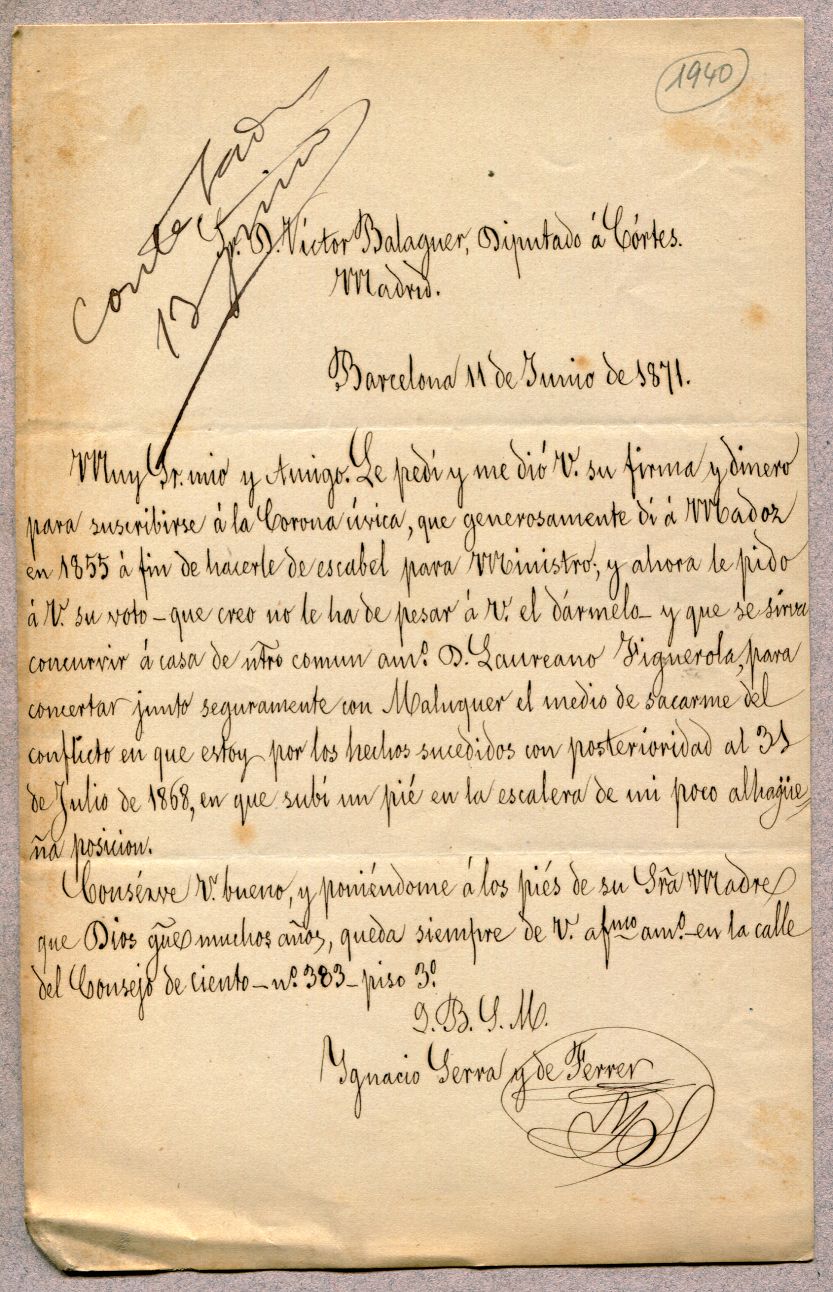 1940
Contestada
13 Junio
Sr. D. Víctor Balaguer, Diputado á Córtes.
Madrid.
Barcelona 11 de Junio de 1871.
Muy Sr. mio y Amigo. Le pedí y me dió V. su firma y dinero
para suscribirse á la Corona úvica, que generosamente dí á Madoz
en 1855 á fin de hacerle de escabel para Ministro; y ahora le pido
á V. su voto - que creo no le ha de pesar á V. el dármelo - y que se sirva
concurrir á casa de ntro comun am.º D. Laureano Figuerola, para
concertar junto seguramente con Maluquer el medio de sacarme del
conflicto en que estoy por los hechos sucedidos con posterioridad al 31
de Julio de 1868, en que subí un pié en la escalera de mi poco alhagüe=
ña posicion.
Consérve V. bueno, y poniéndome á los piés de su Sra Madre
que Dios gue muchos años, queda siempre de V. afmo am.º - en la calle
del Consejo de ciento - n.º 383 - piso 3.º
Q. B. S. M.
Ygnacio Serra y de Ferrer